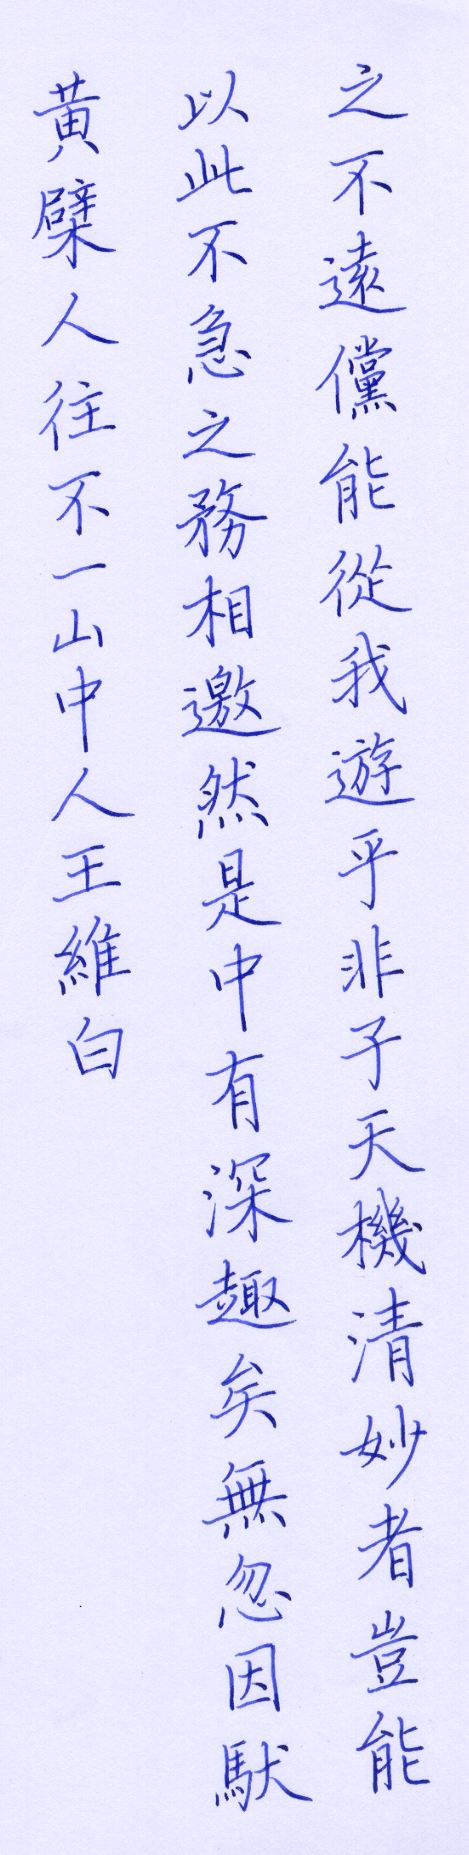 之不遠儻能從我遊乎非子天機清妙者豈能
以此不急之務相邀然是中有深趣矣無忽因馱
黃檗人往不一山中人王維白